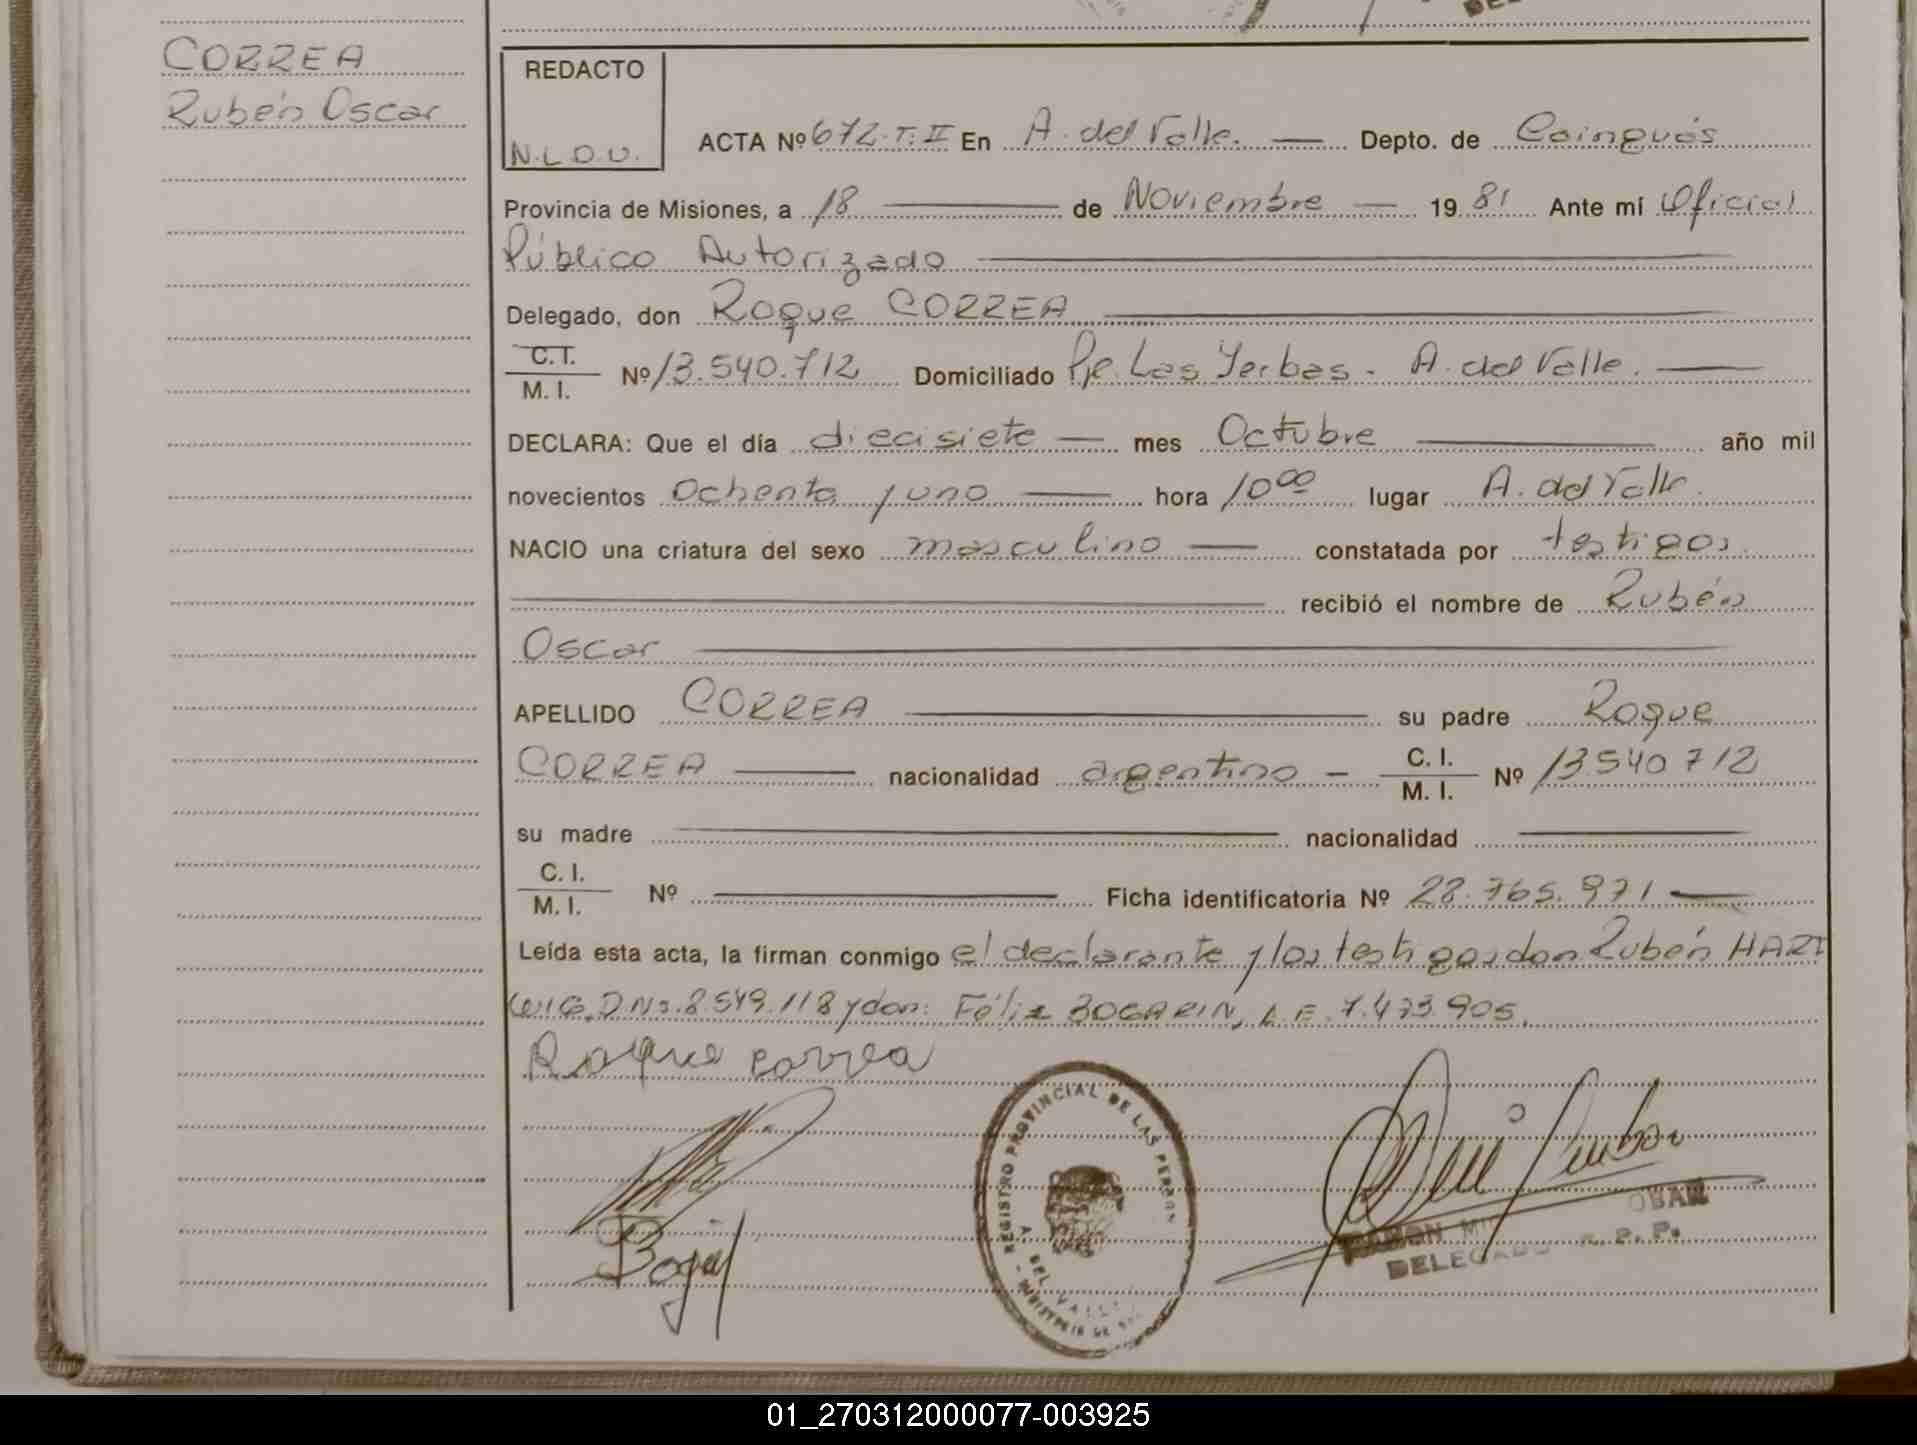 CORREA
Rubén Oscar
REDACTO
N.L.D.U.
ACTA Nº 672-T.II En A. del Valle. Depto. de Cainguás
Provincia de Misiones, a 18 de Noviembre 1981 Ante mí Oficial
Público Autorizado
Delegado, don Roque CORREA
C.I.
M. I. Nº 13.540.712 Domiciliado Pje Las Yerbas - A. del Valle.
DECLARA: Que el día diecisiete mes Octubre año mil
novecientos ochenta y uno hora 10 00 lugar A. del Valle.
NACIO una criatura del sexo masculino constatada por testigos
recibió el nombre de Rubén
Oscar
APELLIDO CORREA su padre Roque
CORREA nacionalidad argentino - C. I.
M. I. Nº 13.540.712
su madre nacionalidad
C. I.
M. I. Nº Ficha identificatoria Nº 28.765.971
Leída esta acta, la firman conmigo el declarante y los testigos don Rubén HART
WIG. D.N.I. 8.549.118 y don: Félix BOGARIN, L.E. 7.473.905.
Roque Correa
REGISTRO PROVINCIAL DE LAS PERSON
A. DEL VALLE
DELEGADO R. P. P.
01_270312000077-003925